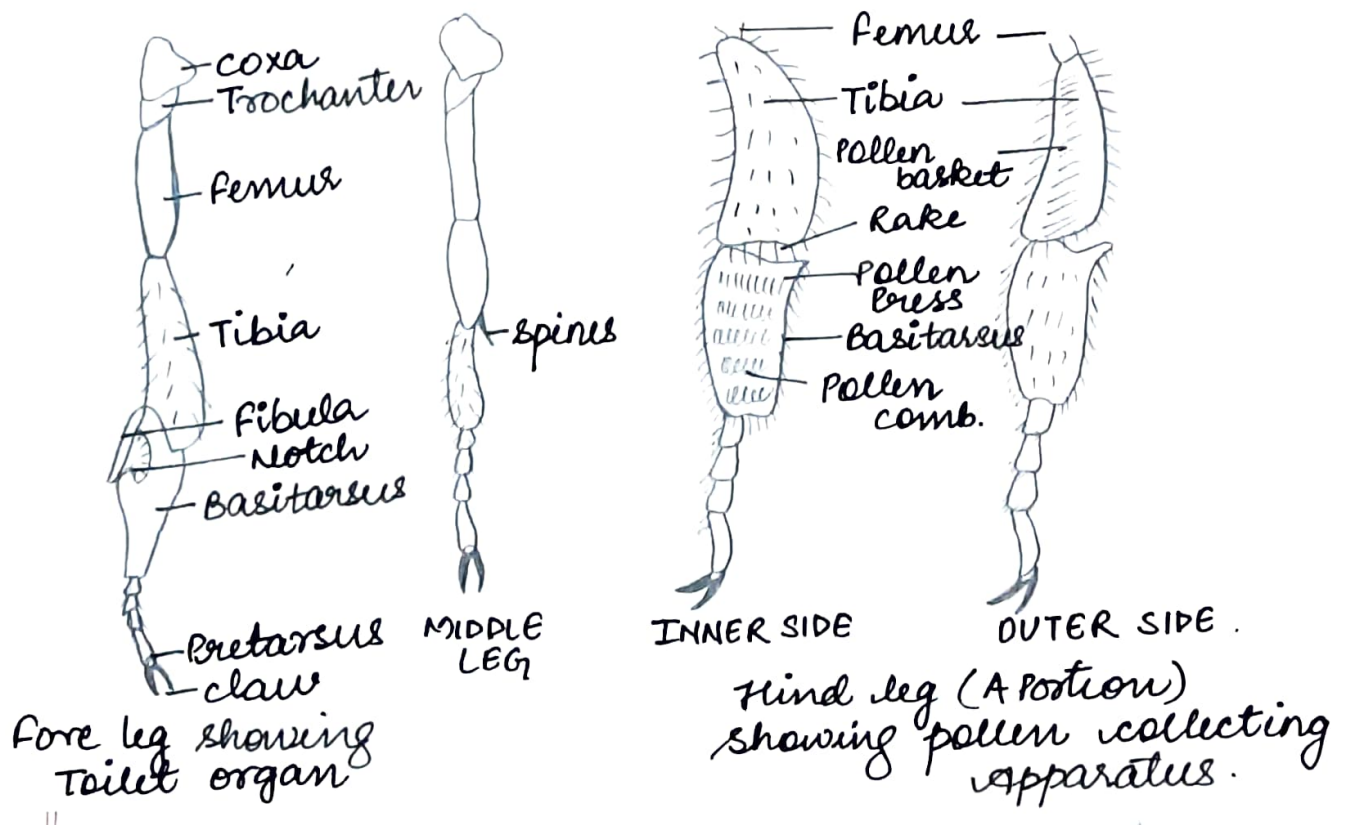 coxa
Trochanter
femur
Tibia
Fibula
Notch
Basitarsus
Pretarsus
claw
Fore leg showing
Toilet organ
spines
MIDDLE
LEG
femur
Tibia
Pollen
basket
Rake
Pollen
Press
Basitarsus
Pollen
comb.
INNER SIDE
OUTER SIDE .
Hind leg (A Portion)
showing pollen collecting
Apparatus.